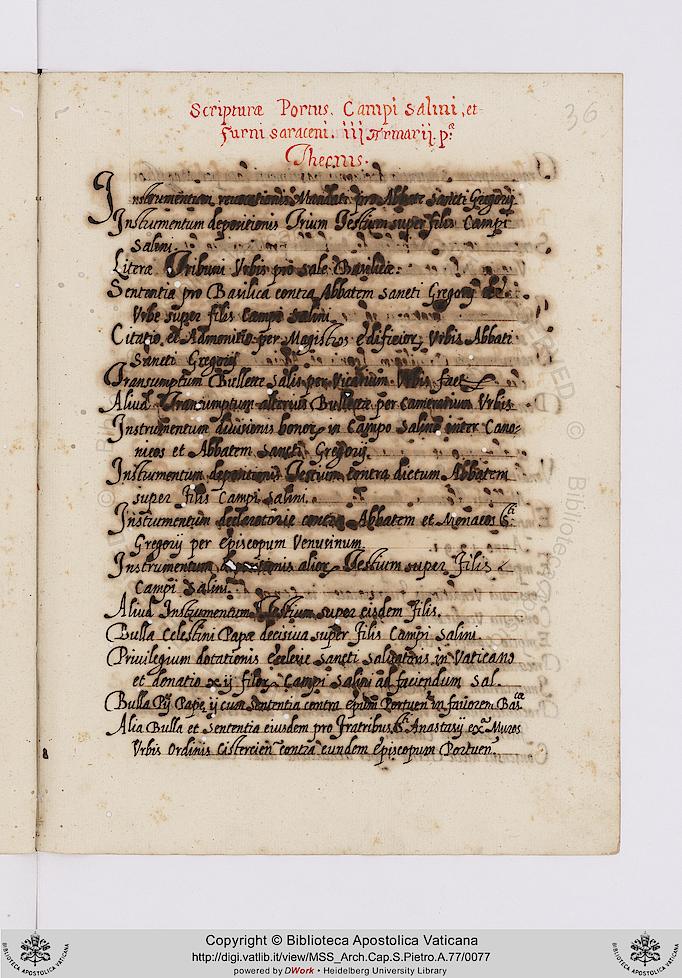 Scripturæ Portus, Campi Salini, et
furni saraceni. iij Armarij. pª
Thecæ
36
Instrumentum revocationis Mandati pro Abbate Sancti Gregorij
Instrumentum depositionis Trium Testium super filis Campi
Salini.
Literæ Tribuni Urbis pro sale Basilicæ.
Sententia pro Basilica contra Abbatem Sancti Gregorij de
Urbe super filis Campi Salini
Citatio et Admonitio per Magistros edificior. Urbis Abbati
Sancti Gregorij
Transumptum Bullette salis per Vicarium Urbis fact
Aliud Transumptum alterius Bullettæ per Camerarium Urbis
Instrumentum divisionis honor. in Campo Salino inter Cano-
nicos et Abbatem Sancti Gregorij.
Instrumentum depositionis Testium contra dictum Abbatem
super filis Campi Salini.
Instrumentum declaratorie contra Abbatem et Monacos S.ti
Gregorij per Episcopum Venusinum
Instrumentum depositionis alior. Testium super filis
Campi Salini.
Aliud Instrumentum Testium super eisdem filis.
Bulla Celestini Papæ decisiva super filis Campi Salini.
Privilegium dotationis Ecclesie Sancti Salvatoris in Vaticano
et donatio xij filor. Campi Salini ad faciendum Sal.
Bulla Pij Papę ij cum Sententia contra epum Portuen. in favorem Bas.cæ
Alia Bulla et Sententia eiusdem pro fratribus S.ti Anastasij exª Muros
Urbis Ordinis Cistercien. contra eundem Episcopum Portuen.
Copyright © Biblioteca Apostolica Vaticana
http://digi.vatlib.it/view/MSS_Arch.Cap.S.Pietro.A.77/0077
powered by DWork • Heidelberg University Library